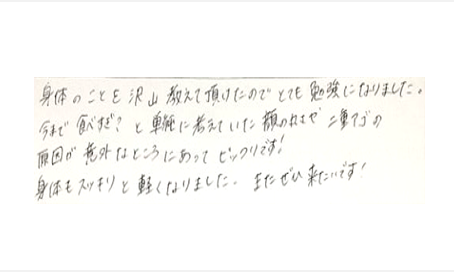 身体のことを沢山教えて頂けたのでとても勉強になりました。
今まで食べすぎ？と単純に考えていた顔のれせぜ二重アゴの
原因が意外なところにあってビックリです！
身体もスッキリと軽くなりました。またぜひ来たいです！